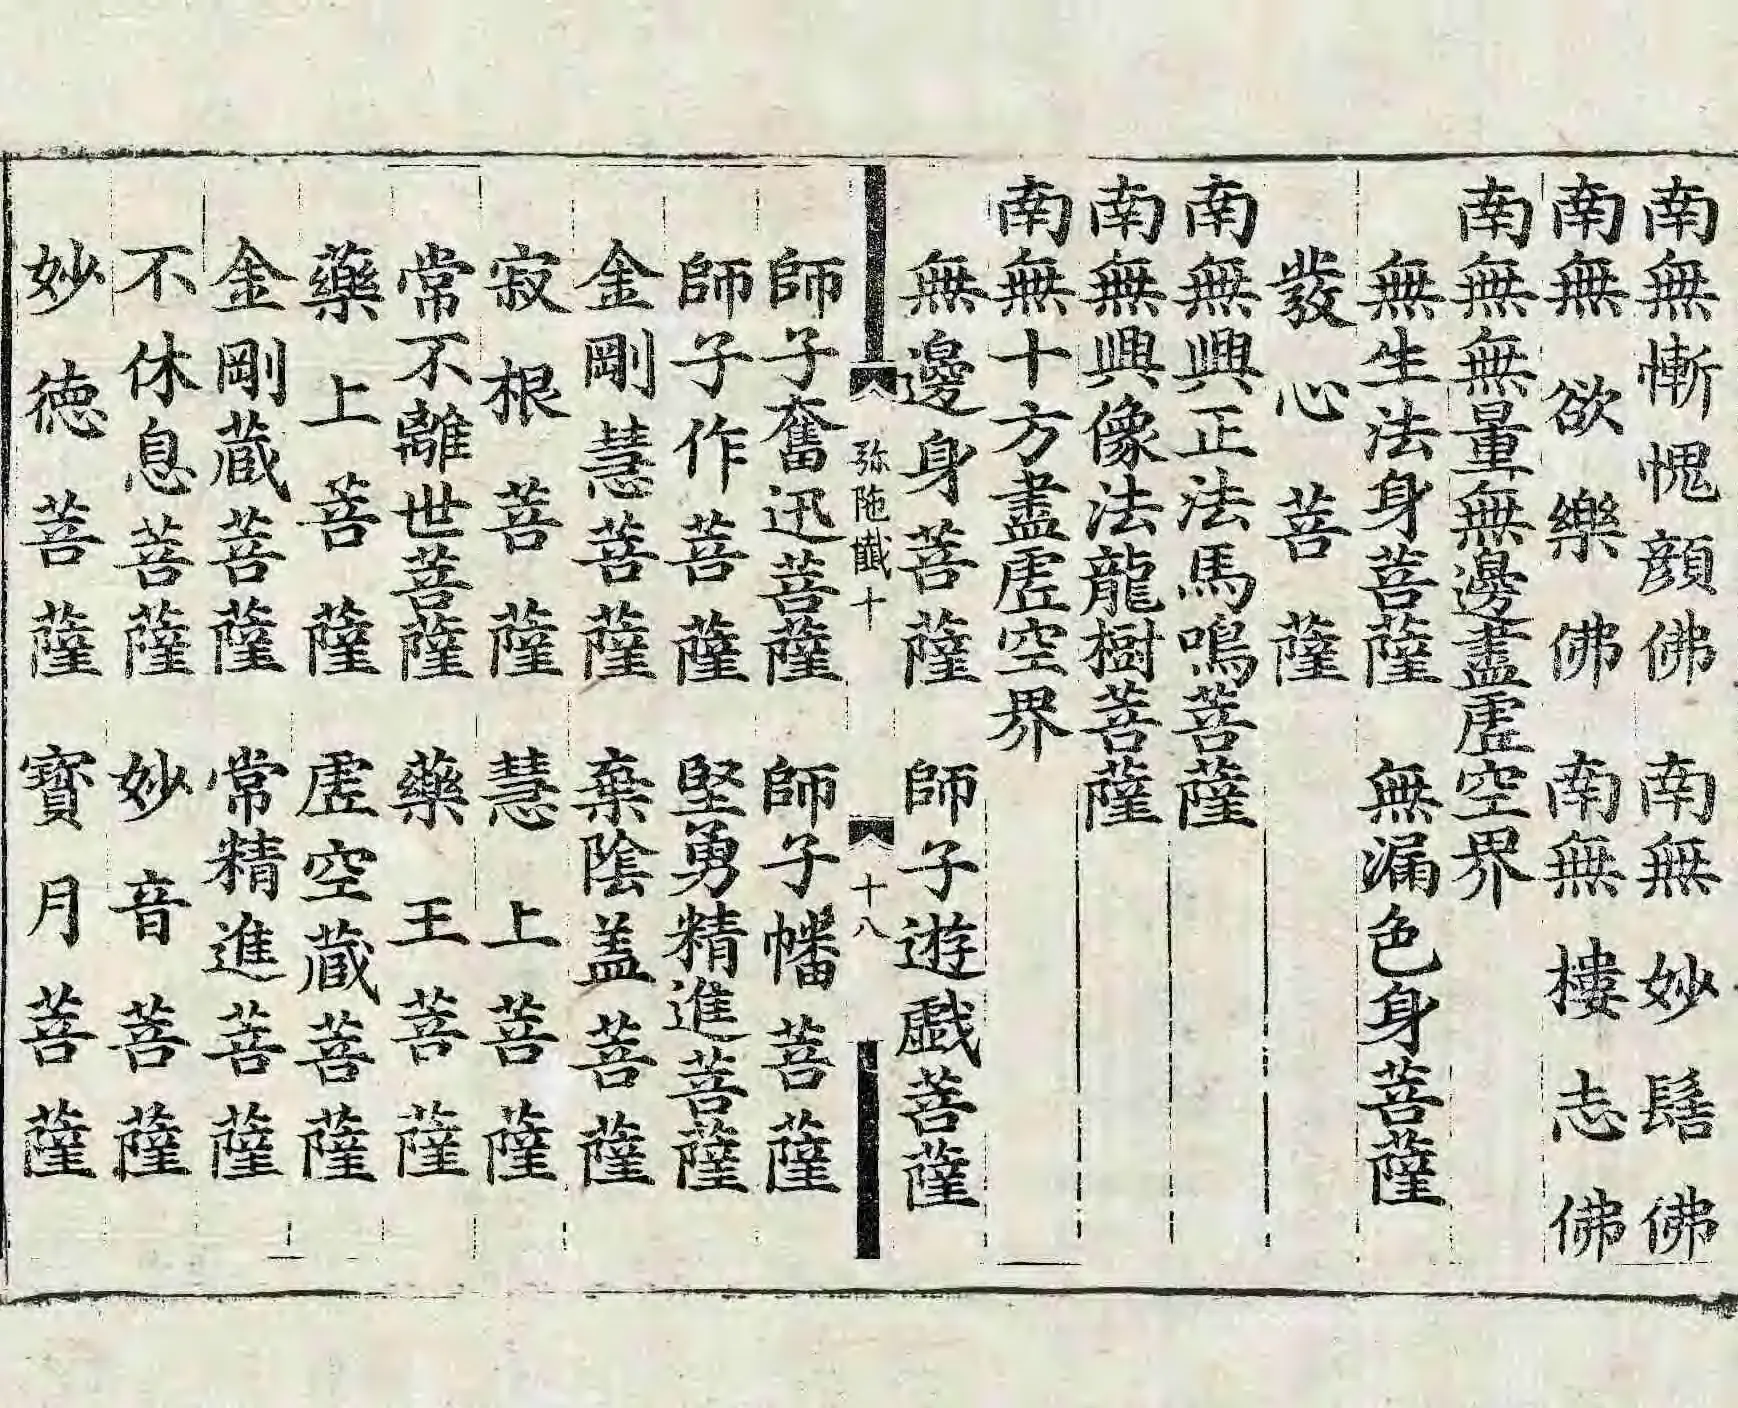 南無慚愧顔佛　南無妙髻佛
南無欲樂佛　南無樓志佛
南無無量無邊盡虗空界
無生法身菩薩　無漏色身菩薩
發心菩薩
南無興正法馬鳴菩薩
南無興像法龍樹菩薩
南無十方盡虗空界
無邊身菩薩　師子遊戲菩薩
弥陁懴十　十八
師子奮迅菩薩　師子幡菩薩
師子作菩薩　堅勇精進菩薩
金剛慧菩薩　棄陰盖菩薩
寂根菩薩　慧上菩薩
常不離世菩薩　藥王菩薩
藥上菩薩　虗空藏菩薩
金剛藏菩薩　常精進菩薩
不休息菩薩　妙音菩薩
妙德菩薩　寶月菩薩